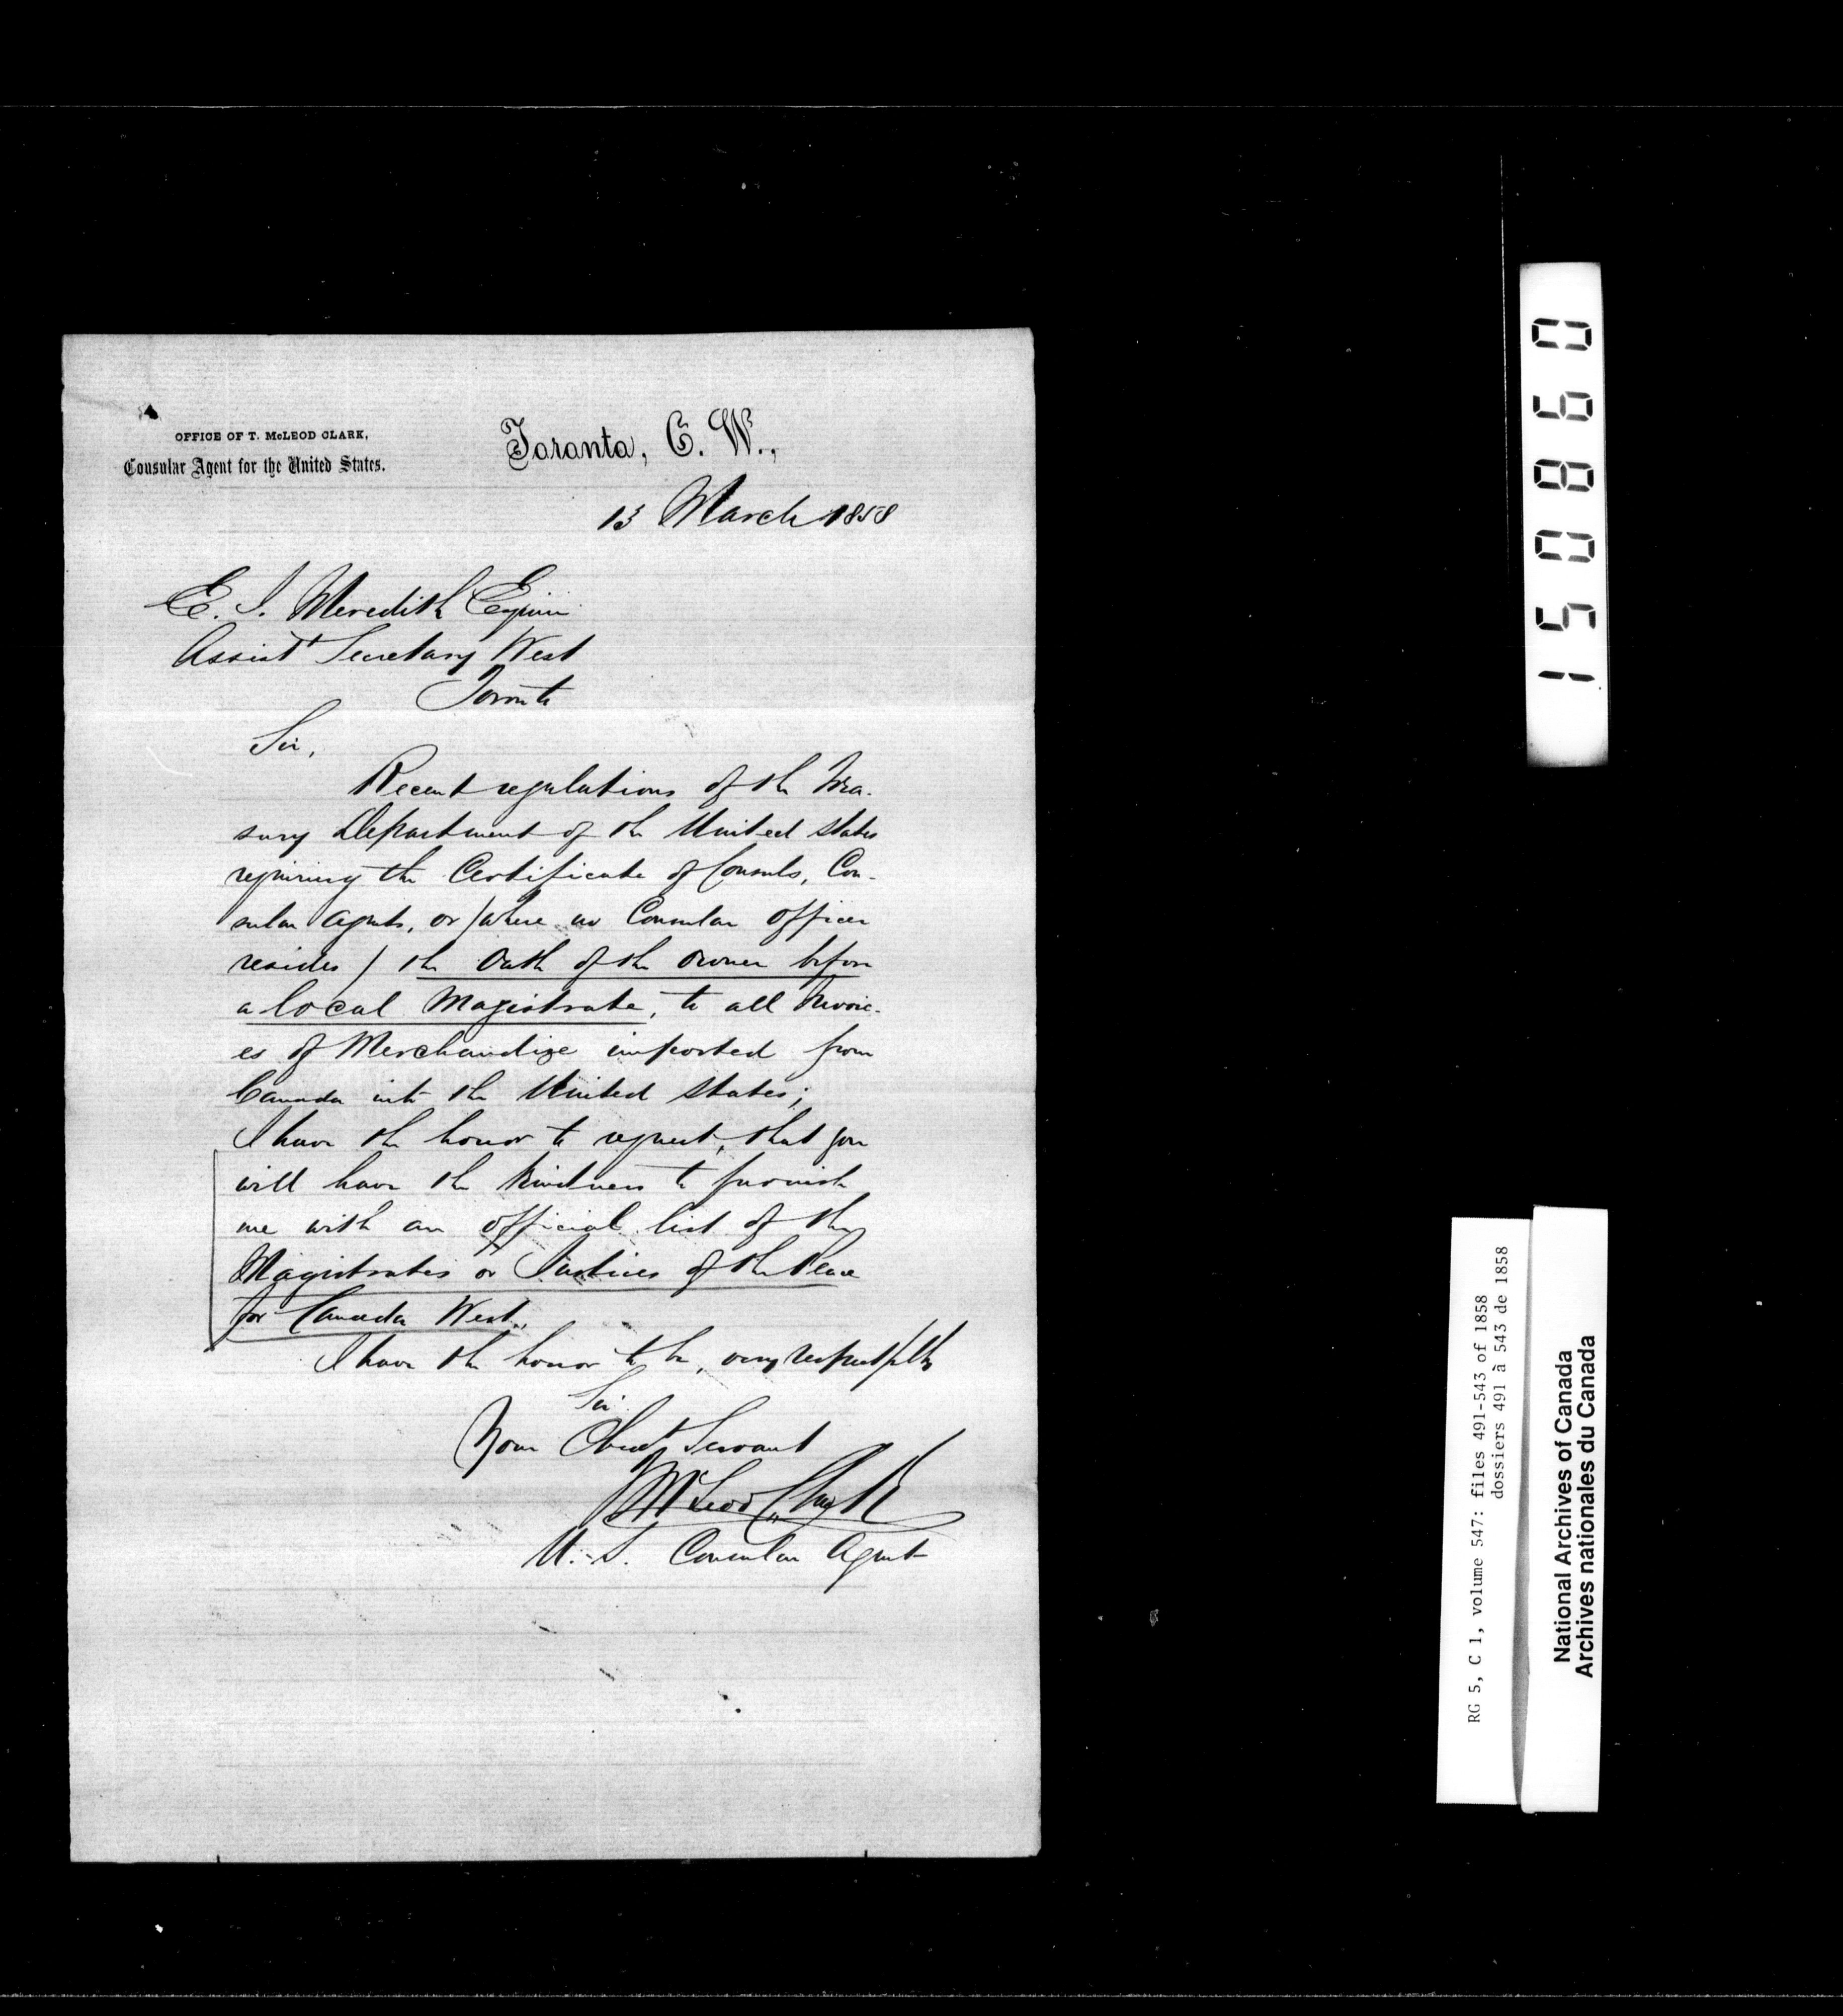 OFFICE OF T. McLEOD CLARK,
Consular Agent for the United States.
Toronto, C. W.,
13 March 1858
E. J. Meredith Esquire
Assist Secretary West
Toronto
Sir,
Recent regulations of the Trea-
sury Department of the United States
requiring the Certificate of Consuls, Con-
sular Agents, or (where no Consular officer
resides) the Oath of the owner before
a local Magistrate, to all Invoic-
es of Merchandize imported from
Canada into the United States;
I have the honor to request, that you
will have the kindness to furnish
me with an official list of the
Magistrates or Justices of the Peace
for Canada West.
I have the honor to be, very respectfully
Sir
Your Obedt Servant
T McLeod Clark
U.S. Consular Agent
150860
RG 5, C 1, volume 547: files 491-543 of 1858
dossiers 491 à 543 de 1858
National Archives of Canada
Archives nationales du Canada